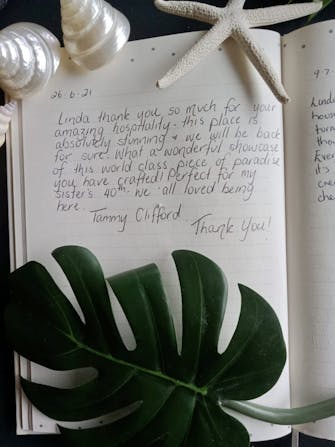 26-6-21
Linda thank you so much for your
amazing hospitality - this place is
absolutely stunning & we will be back
for sure. What a wonderful showcase
of this world class piece of paradise
you have crafted! Perfect for my
sister's 40th - we all loved being
here.
Tammy Clifford
Thank You!
97
Linda
hous
turn
tho
Eve
it's
cre
che